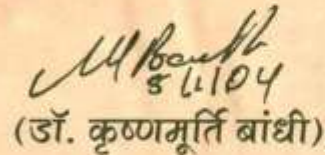 8/1/04
(डॉ. कृष्णमूर्ति बांधी)